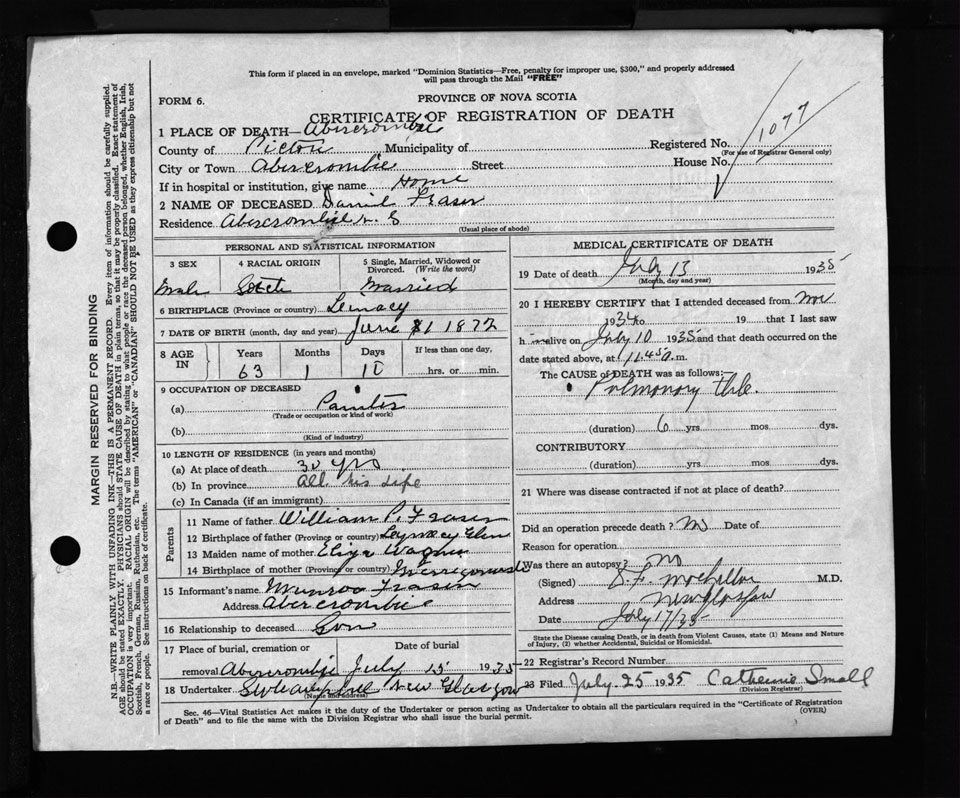 This form if placed in an envelope, marked "Dominion Statistics—Free, penalty for improper use, $300," and properly addressed
will pass through the Mail "FREE"
FORM 6.
PROVINCE OF NOVA SCOTIA
CERTIFICATE OF REGISTRATION OF DEATH
1077
1 PLACE OF DEATH—Abercrombie
County of Pictou Municipality of Registered No.
(For use of Registrar General only)
City or Town Abercrombie Street House No.
If in hospital or institution, give name Home
2 NAME OF DECEASED Daniel Fraser
Residence Abercrombie N. S
(Usual place of abode)
PERSONAL AND STATISTICAL INFORMATION
3 SEX 4 RACIAL ORIGIN 5 Single, Married, Widowed or Divorced. (Write the word)
Male Married
6 BIRTHPLACE (Province or country)
7 DATE OF BIRTH (month, day and year) June 1 1872
8 AGE IN Years Months Days If less than one day,
63 1 hrs. or min.
9 OCCUPATION OF DECEASED
(a) Painter
(Trade or occupation or kind of work)
(b)
(Kind of industry)
10 LENGTH OF RESIDENCE (in years and months)
(a) At place of death 30 yrs
(b) In province All his Life
(c) In Canada (if an immigrant)
Parents
11 Name of father William P. Fraser
12 Birthplace of father (Province or country) Glen
13 Maiden name of mother Eliza
14 Birthplace of mother (Province or country)
15 Informant's name Munroe Fraser
Address Abercrombie
16 Relationship to deceased Son
17 Place of burial, cremation or Date of burial
removal Abercrombie July 15 1935
18 Undertaker New Glasgow
(Name and address)
MEDICAL CERTIFICATE OF DEATH
19 Date of death July 13 1935
(Month, day and year)
20 I HEREBY CERTIFY that I attended deceased from Nov
1934 to 19 that I last saw
h alive on July 10 1935 and that death occurred on the
date stated above, at 11.45 a.m.
The CAUSE OF DEATH was as follows:
Pulmonary
(duration) 6 yrs mos. dys.
CONTRIBUTORY
(duration) yrs mos. dys.
21 Where was disease contracted if not at place of death?
Did an operation precede death? No Date of
Reason for operation
Was there an autopsy? No
(Signed) D. F. M.D.
Address New Glasgow
Date July 17/35
State the Disease causing Death, or in death from Violent Causes, state (1) Means and Nature
of Injury, (2) whether Accidental, Suicidal or Homicidal.
22 Registrar's Record Number
23 Filed July 25 1935 Catherine Small
(Division Registrar)
Sec. 46—Vital Statistics Act makes it the duty of the Undertaker or person acting as Undertaker to obtain all the particulars required in the "Certificate of Registration
of Death" and to file the same with the Division Registrar who shall issue the burial permit.
(OVER)
MARGIN RESERVED FOR BINDING
N.B.—WRITE PLAINLY WITH UNFADING INK—THIS IS A PERMANENT RECORD. Every item of information should be carefully supplied.
AGE should be stated EXACTLY. PHYSICIANS should STATE CAUSE OF DEATH in plain terms, so that it may be properly classified. Exact statement of
OCCUPATION is very important. RACIAL ORIGIN will be described by stating to what people or race the deceased person belonged, whether English, Irish,
Scottish, French, German, Russian, Ruthenian, etc. The terms "AMERICAN" or "CANADIAN" SHOULD NOT BE USED as they express citizenship but not
a race or people. See instructions on back of certificate.